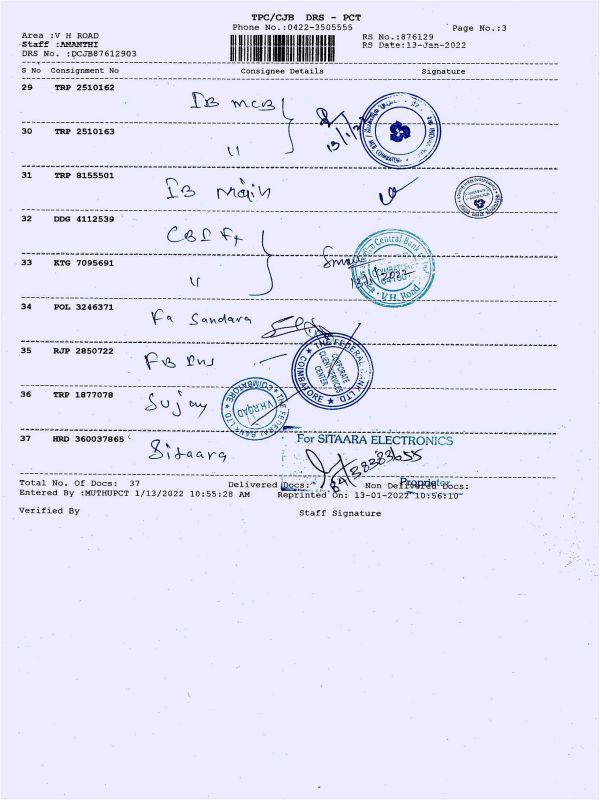 TPC/CJB DRS - PCT
Phone No.:0422-3505555
Page No.:3
Area :V H ROAD
RS No.:876129
Staff :ANANTHI
RS Date:13-Jan-2022
DRS No. :DCJB87612903
S No Consignment No Consignee Details Signature
29 TRP 2510162
IB MCB
30 TRP 2510163
"
31 TRP 8155501
IB Main
32 DDG 4112539
CBI
33 KTG 7095691
"
Central Bank
COIMBATORE
V.H. Road
34 POL 3246371
Fa Sandara
35 RJP 2850722
FB
THE FEDERAL BANK LTD
CORPORATE
CLIENT SERVICES
CENTER
COIMBATORE
36 TRP 1877078
Sujay
THE FEDERAL BANK LTD
V.H.ROAD
COIMBATORE
37 HRD 360037865
Sitaara
For SITAARA ELECTRONICS
Proprietor
Total No. Of Docs: 37 Delivered Docs: Non Delivered Docs:
Entered By :MUTHUPCT 1/13/2022 10:55:28 AM Reprinted On: 13-01-2022 10:56:10
Verified By Staff Signature